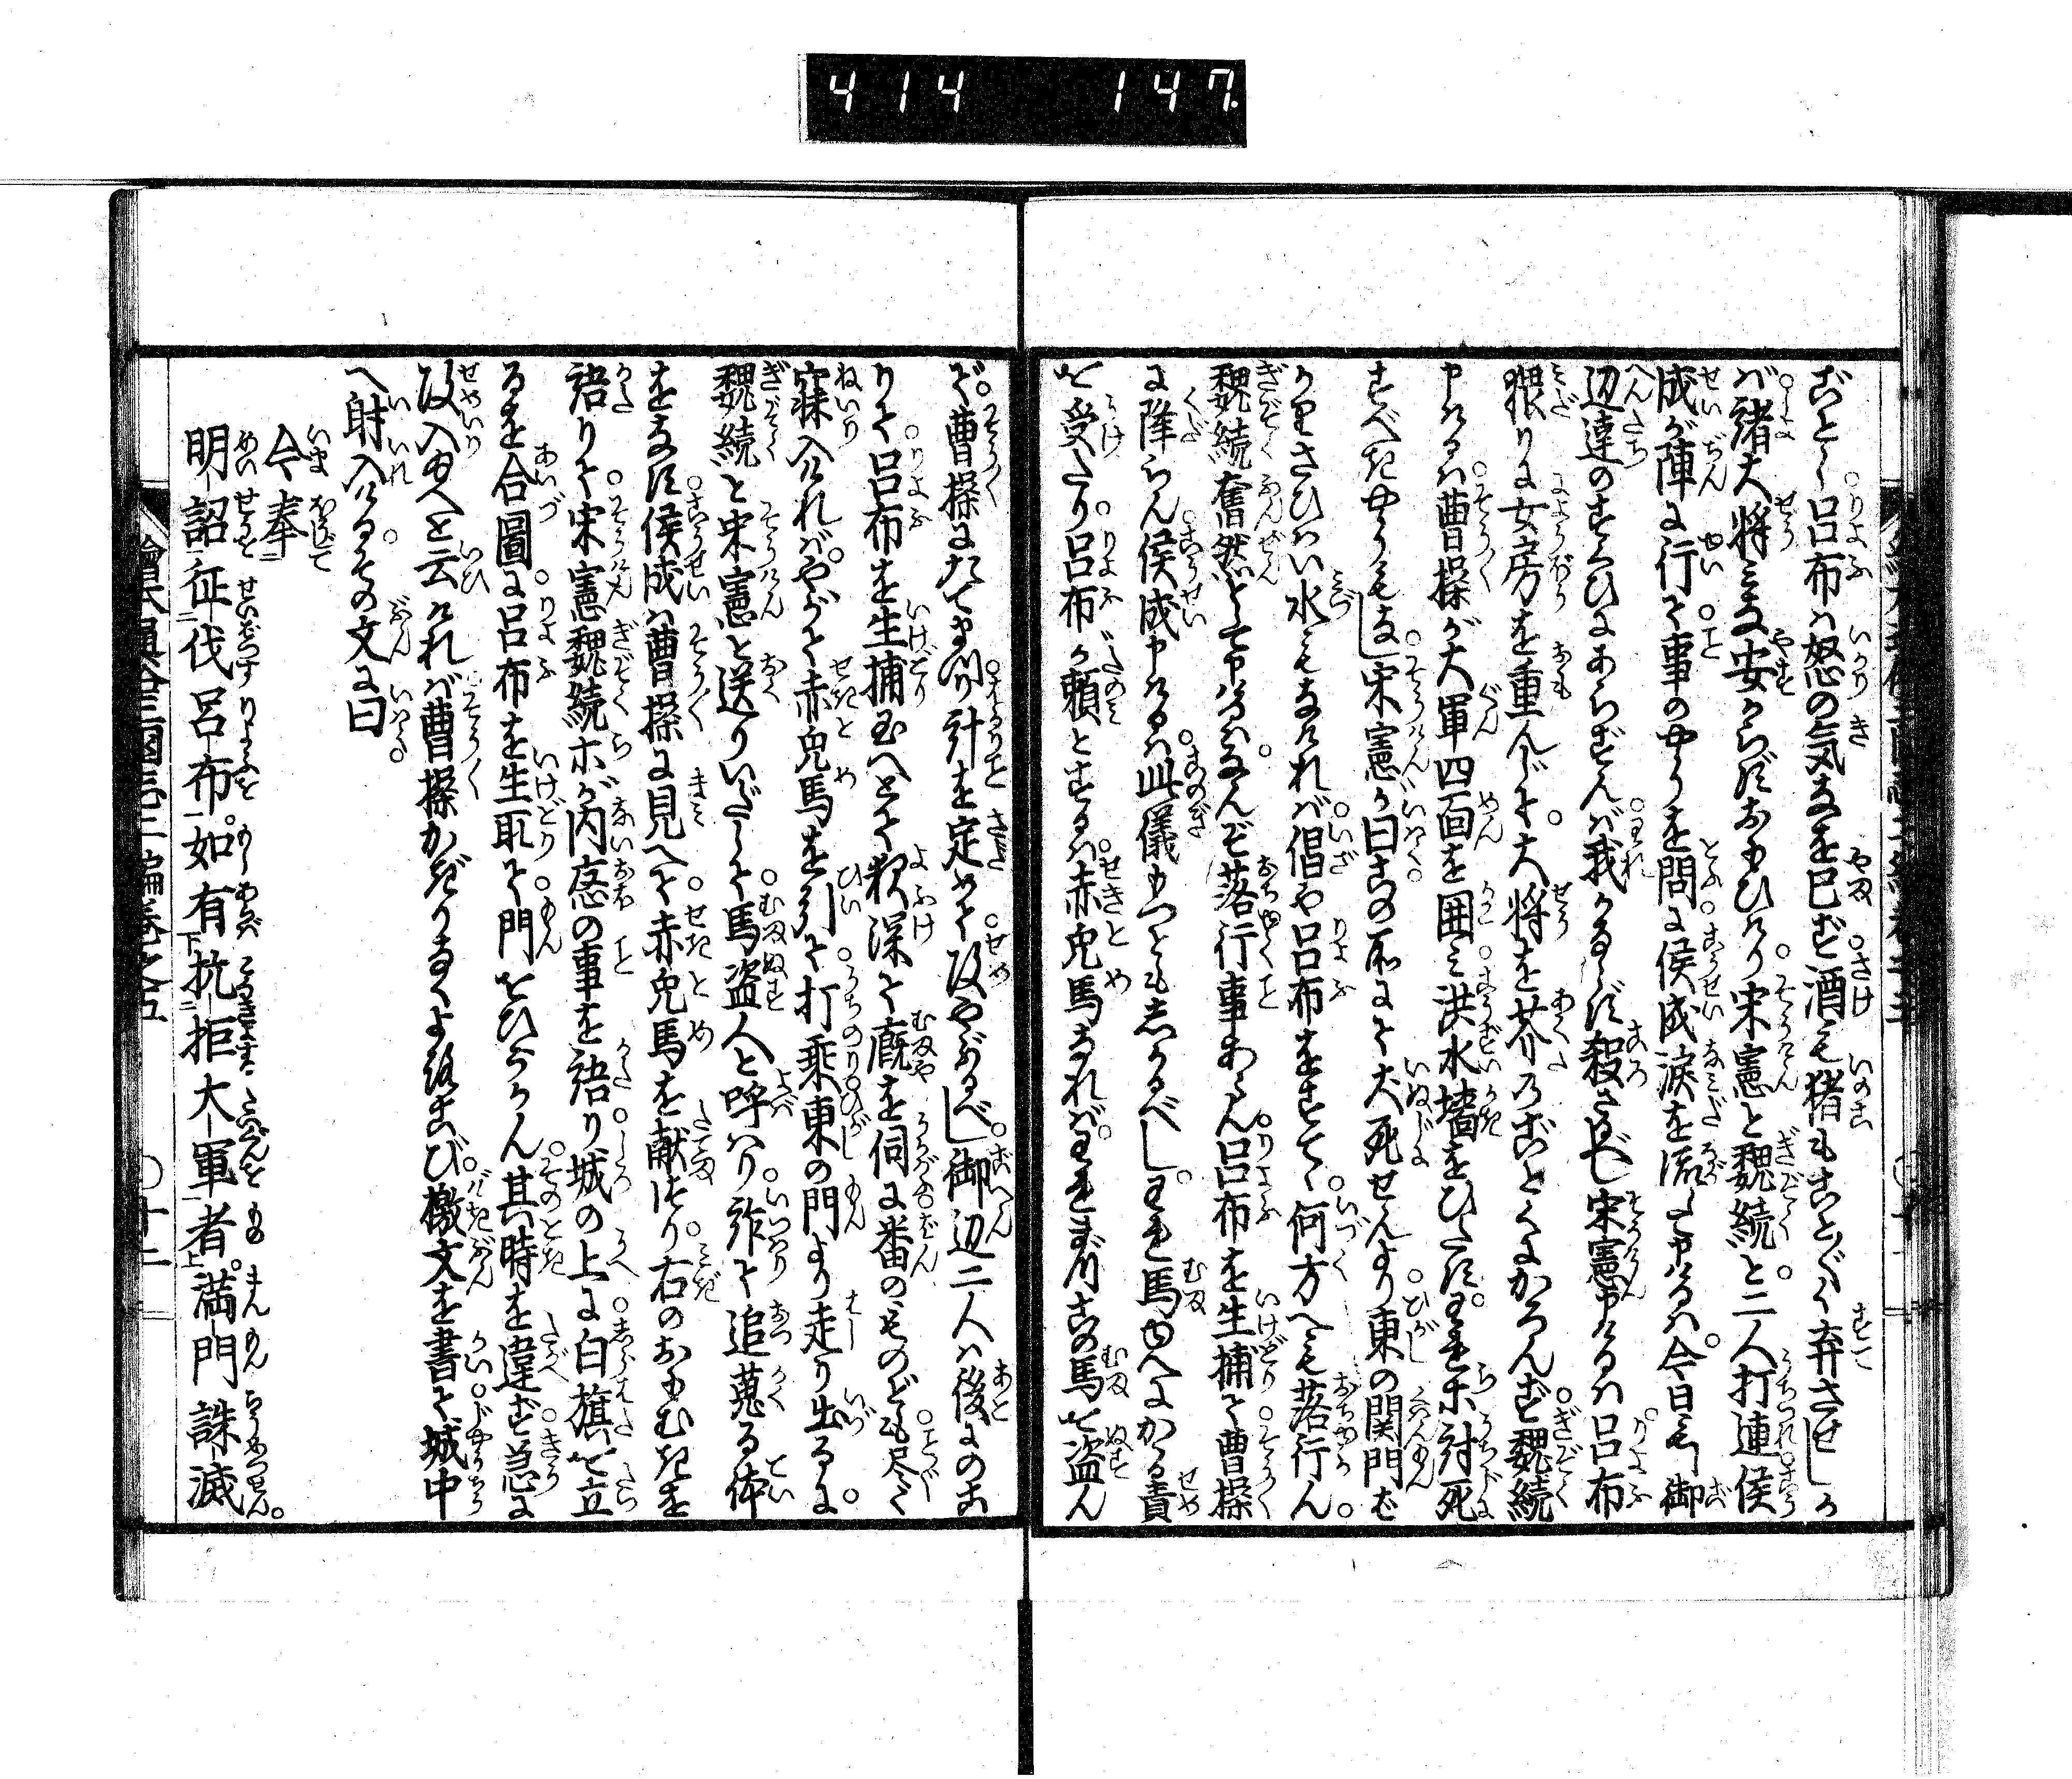 414 147
ごとし呂布ハ怒の気なを已ず酒も猪もことごとく弃させしか
バ諸大将ミな安からずおもひけり宋憲と魏続と二人打連侯
成が陣に行て事のやうを問に侯成涙を流して申けるハ今日もし御
辺達のすくひにあらずんバ我かならず殺さるべし宋憲申けるハ呂布
猥りに女房を重んじて大将を芥のごとくにかろんず魏続
申けるハ曹操が大軍四面を囲ミ洪水墻をひたすわれ等討死
すべきやうもなし宋憲が曰この所にて犬死せんより東の関門ば
かりさひハい水もなけれバ倡や呂布をすてて何方へも落行ん
魏続奮然として申けるハなんぞ落行事あらん呂布を生捕て曹操
に降らん侯成申けるハ此儀もつとも志かるべしわれ馬ゆへにかゝる責
を受たり呂布が頼とするハ赤兎馬なれバわれまづこの馬を盗ん
で曹操にたてまつり計を定めて攻やぶるべし御辺二人ハ後にのこ
りて呂布を生捕玉へとて夜深て廐を伺に番のものども尽く
寐入けれバやがて赤兎馬を引て打乗東の門より走り出るに
魏続と宋憲と送りいだして馬盗人と呼ハり詐て追蒐る体
をなす侯成ハ曹操に見へて赤兎馬を献けり右のおもむきを
語りて宋憲魏続等が内応の事を語り城の上に白旗を立
るを合圖に呂布を生取て門をひらかん其時を違ず急に
攻入玉へと云けれバ曹操かぎりなくよろこび檄文を書て城中
へ射入けるその文に曰
今奉
明詔征伐呂布如有抗拒大軍者満門誅滅
繪本通俗三國志二編巻之五 ○十二